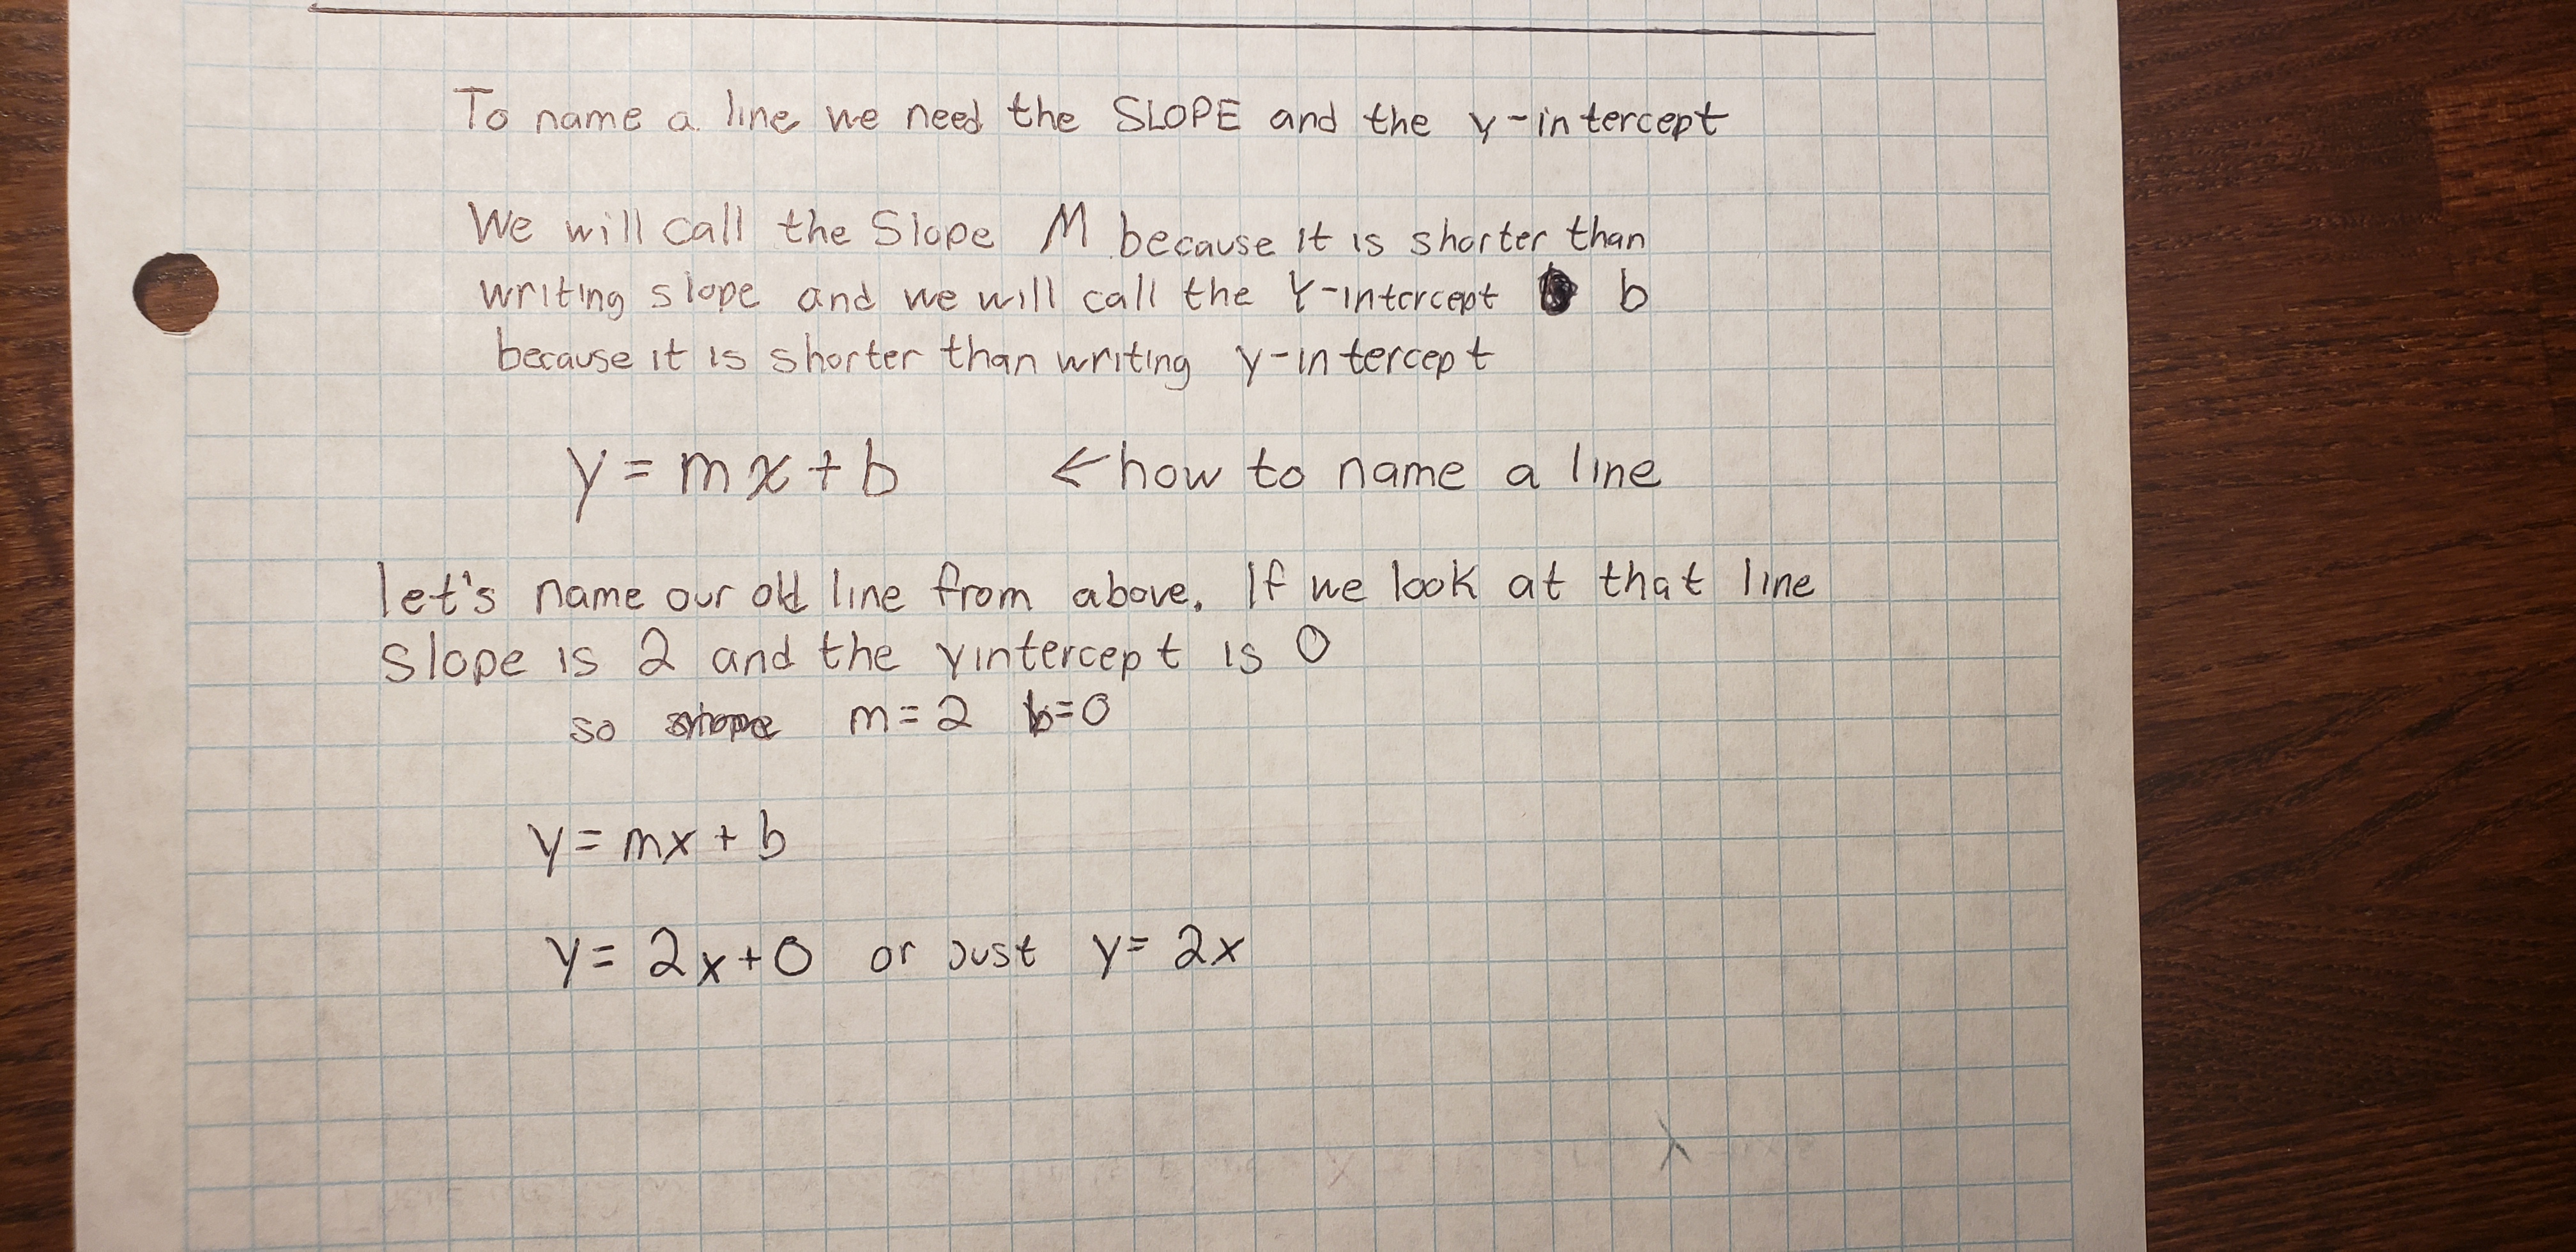 To name a line we need the SLOPE and the y-intercept
We will call the Slope M because it is shorter than
writing slope and we will call the Y-intercept b
because it is shorter than writing y-intercept
y = mx + b ← how to name a line
let's name our old line from above. If we look at that line
slope is 2 and the yintercept is 0
so m = 2 b = 0
y = mx + b
y = 2x + 0 or just y = 2x